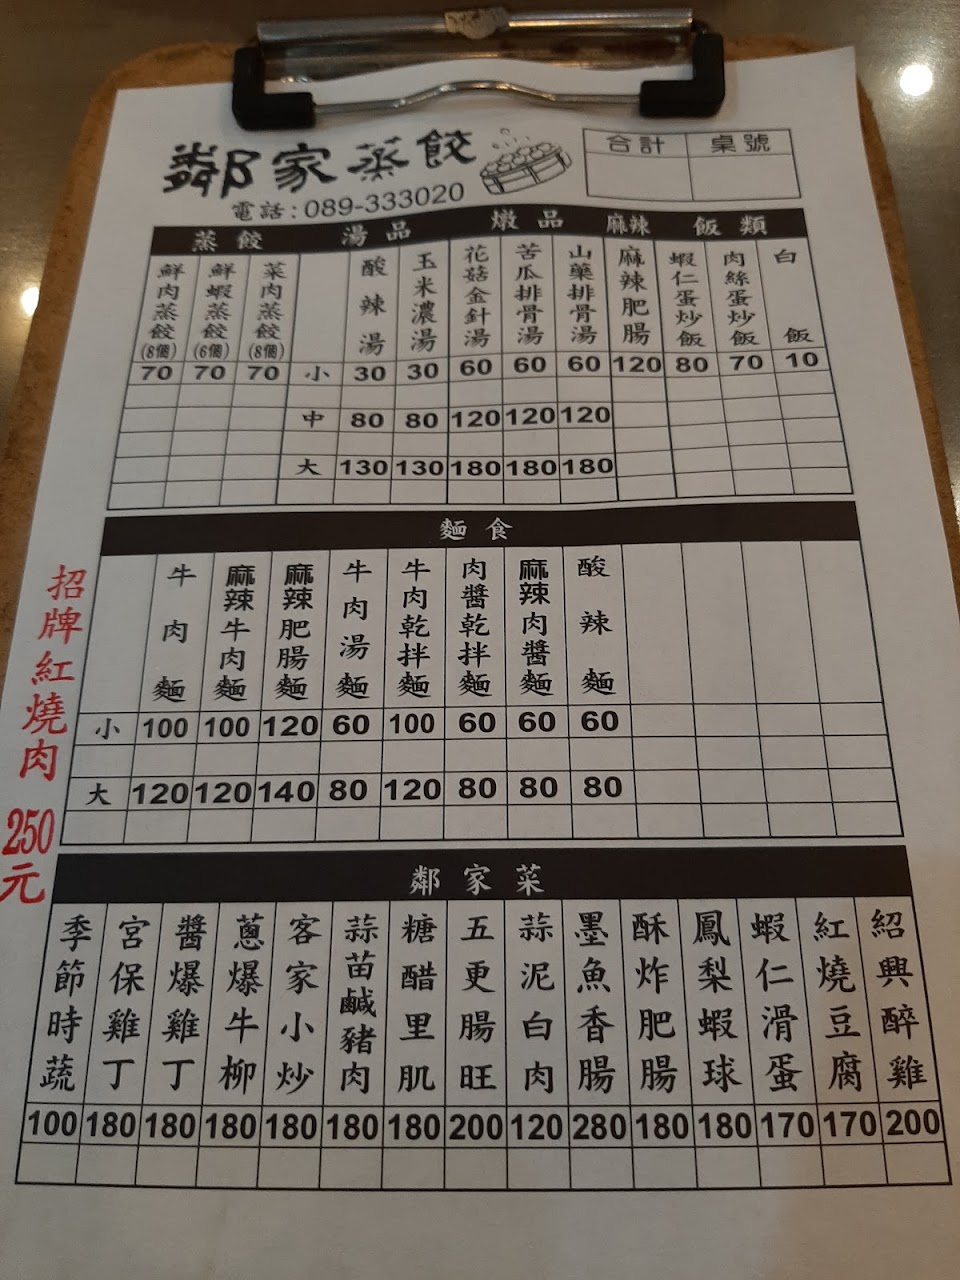 鄰家蒸餃
電話:089-333020
合計 桌號
蒸餃 湯品 燉品 麻辣 飯類
鮮肉蒸餃(8個)
鮮蝦蒸餃(6個)
菜肉蒸餃(8個)
酸辣湯
玉米濃湯
花菇金針湯
苦瓜排骨湯
山藥排骨湯
麻辣肥腸
蝦仁蛋炒飯
肉絲蛋炒飯
白飯
70 70 70 小 30 30 60 60 60 120 80 70 10
中 80 80 120 120 120
大 130 130 180 180 180
麵食
牛肉麵
麻辣牛肉麵
麻辣肥腸麵
牛肉湯麵
牛肉乾拌麵
肉醬乾拌麵
麻辣肉醬麵
酸辣麵
小 100 100 120 60 100 60 60 60
大 120 120 140 80 120 80 80 80
招牌紅燒肉 250元
鄰家菜
季節時蔬
宮保雞丁
醬爆雞丁
蔥爆牛柳
客家小炒
蒜苗鹹豬肉
糖醋里肌
五更腸旺
蒜泥白肉
墨魚香腸
酥炸肥腸
鳳梨蝦球
蝦仁滑蛋
紅燒豆腐
紹興醉雞
100 180 180 180 180 180 180 200 120 280 180 180 170 170 200